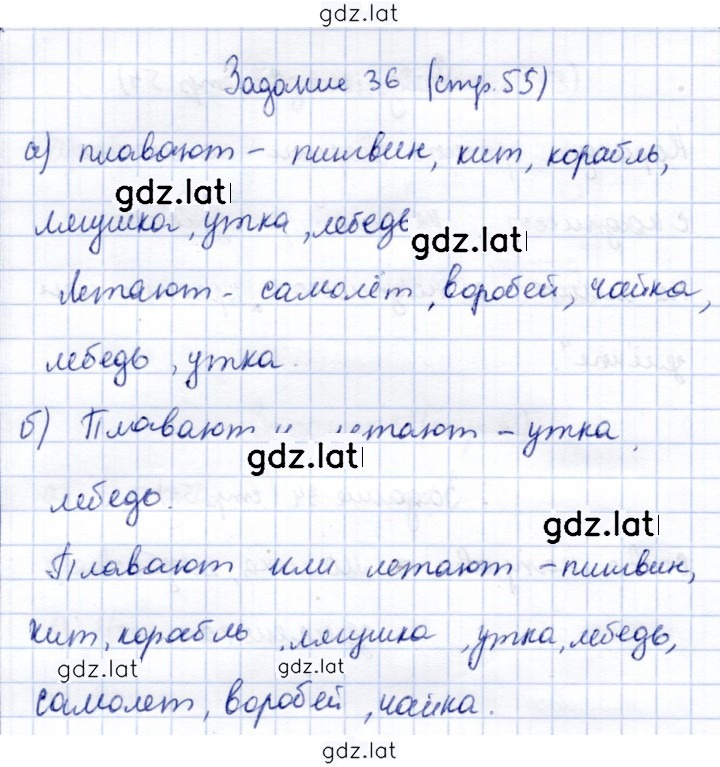 gdz.lat
Задание 36 (стр. 55)
а) плавают – пингвин, кит, корабль,
gdz.lat
лягушка, утка, лебедь
gdz.lat
Летают – самолёт, воробей, чайка,
лебедь, утка.
б) Плавают и летают – утка,
gdz.lat
лебедь.
gdz.lat
Плавают или летают – пингвин,
кит, корабль, лягушка, утка, лебедь,
gdz.lat gdz.lat
самолет, воробей, чайка.
gdz.lat